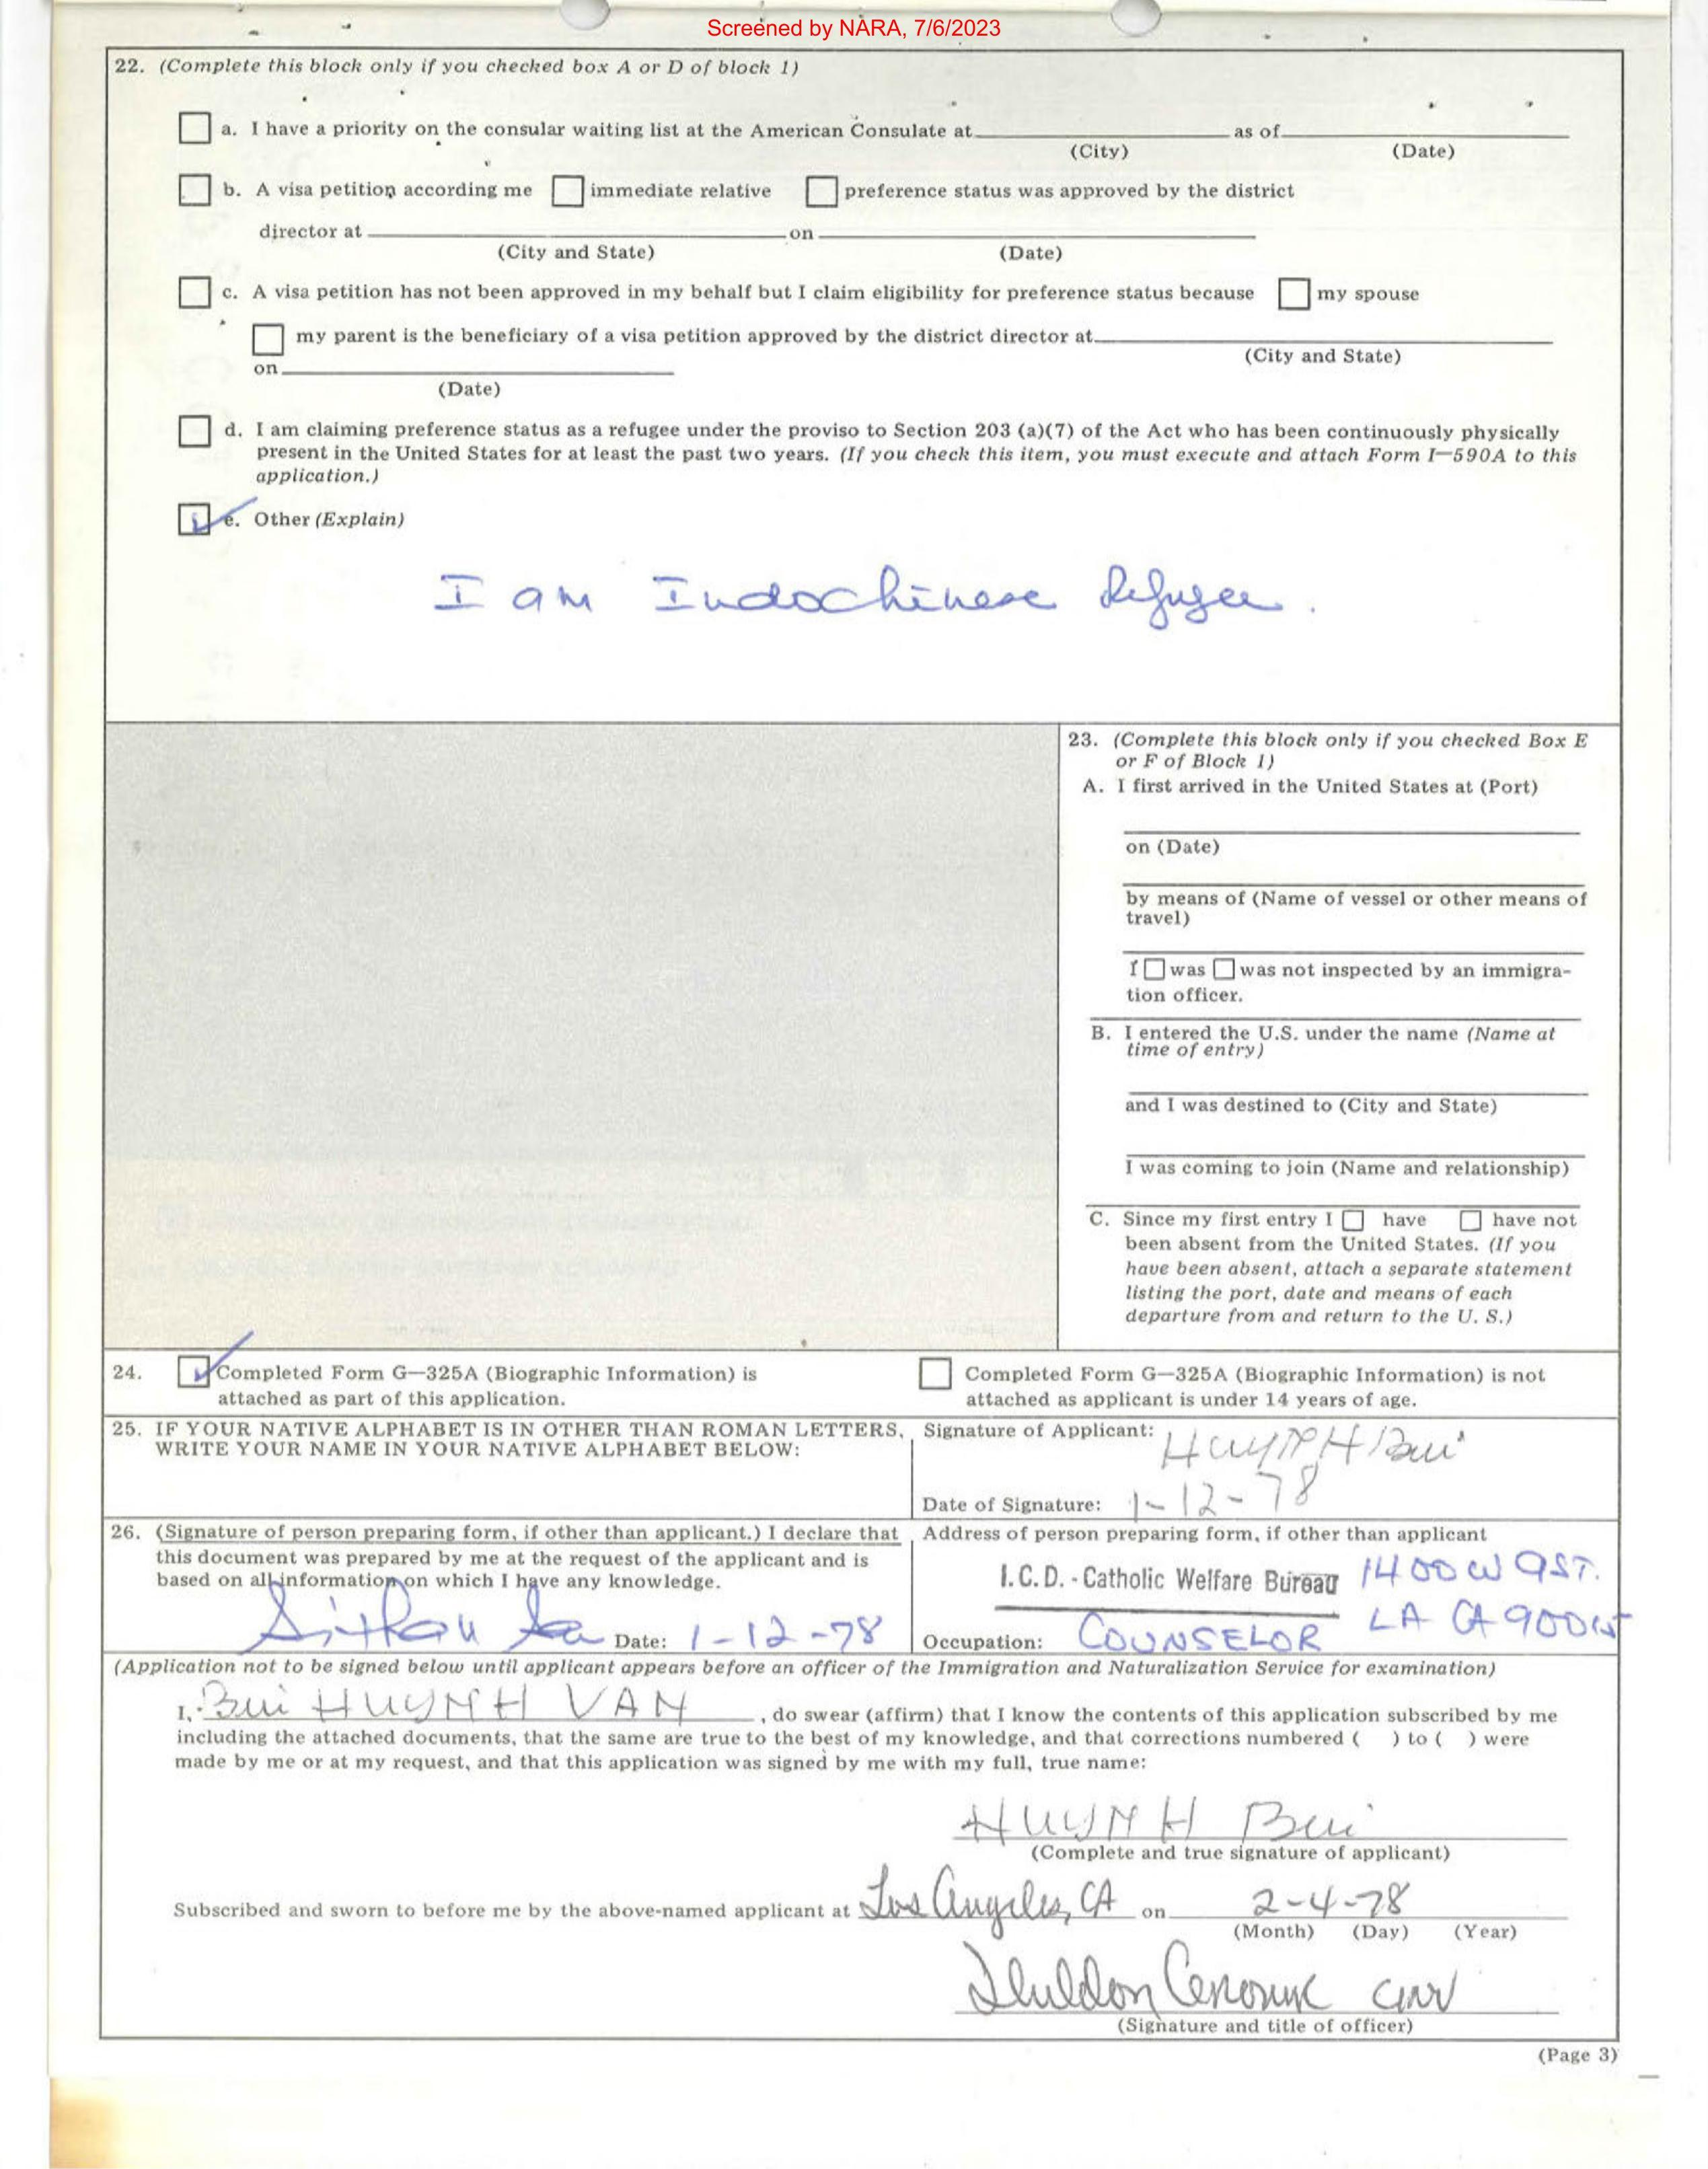 Screened by NARA, 7/6/2023
22. (Complete this block only if you checked box A or D of block 1)
a. I have a priority on the consular waiting list at the American Consulate at as of
(City) (Date)
b. A visa petition according me immediate relative preference status was approved by the district
director at on
(City and State) (Date)
c. A visa petition has not been approved in my behalf but I claim eligibility for preference status because my spouse
my parent is the beneficiary of a visa petition approved by the district director at
(City and State)
on
(Date)
d. I am claiming preference status as a refugee under the proviso to Section 203 (a)(7) of the Act who has been continuously physically
present in the United States for at least the past two years. (If you check this item, you must execute and attach Form I-590A to this
application.)
e. Other (Explain)
I am Indochinese Refugee.
23. (Complete this block only if you checked Box E
or F of Block 1)
A. I first arrived in the United States at (Port)
on (Date)
by means of (Name of vessel or other means of
travel)
I was was not inspected by an immigra-
tion officer.
B. I entered the U.S. under the name (Name at
time of entry)
and I was destined to (City and State)
I was coming to join (Name and relationship)
C. Since my first entry I have have not
been absent from the United States. (If you
have been absent, attach a separate statement
listing the port, date and means of each
departure from and return to the U. S.)
24. Completed Form G-325A (Biographic Information) is
attached as part of this application.
Completed Form G-325A (Biographic Information) is not
attached as applicant is under 14 years of age.
25. IF YOUR NATIVE ALPHABET IS IN OTHER THAN ROMAN LETTERS,
WRITE YOUR NAME IN YOUR NATIVE ALPHABET BELOW:
Signature of Applicant: HUYNH Bui
Date of Signature: 1-12-78
26. (Signature of person preparing form, if other than applicant.) I declare that
this document was prepared by me at the request of the applicant and is
based on all information on which I have any knowledge.
Date: 1-12-78
Address of person preparing form, if other than applicant
I.C.D. - Catholic Welfare Bureau 1400 W 9ST.
LA CA 90015
Occupation: COUNSELOR
(Application not to be signed below until applicant appears before an officer of the Immigration and Naturalization Service for examination)
I, Bui HUYNH VAN, do swear (affirm) that I know the contents of this application subscribed by me
including the attached documents, that the same are true to the best of my knowledge, and that corrections numbered ( ) to ( ) were
made by me or at my request, and that this application was signed by me with my full, true name:
HUYNH Bui
(Complete and true signature of applicant)
Subscribed and sworn to before me by the above-named applicant at Los Angeles, CA on 2-4-78
(Month) (Day) (Year)
(Signature and title of officer)
(Page 3)